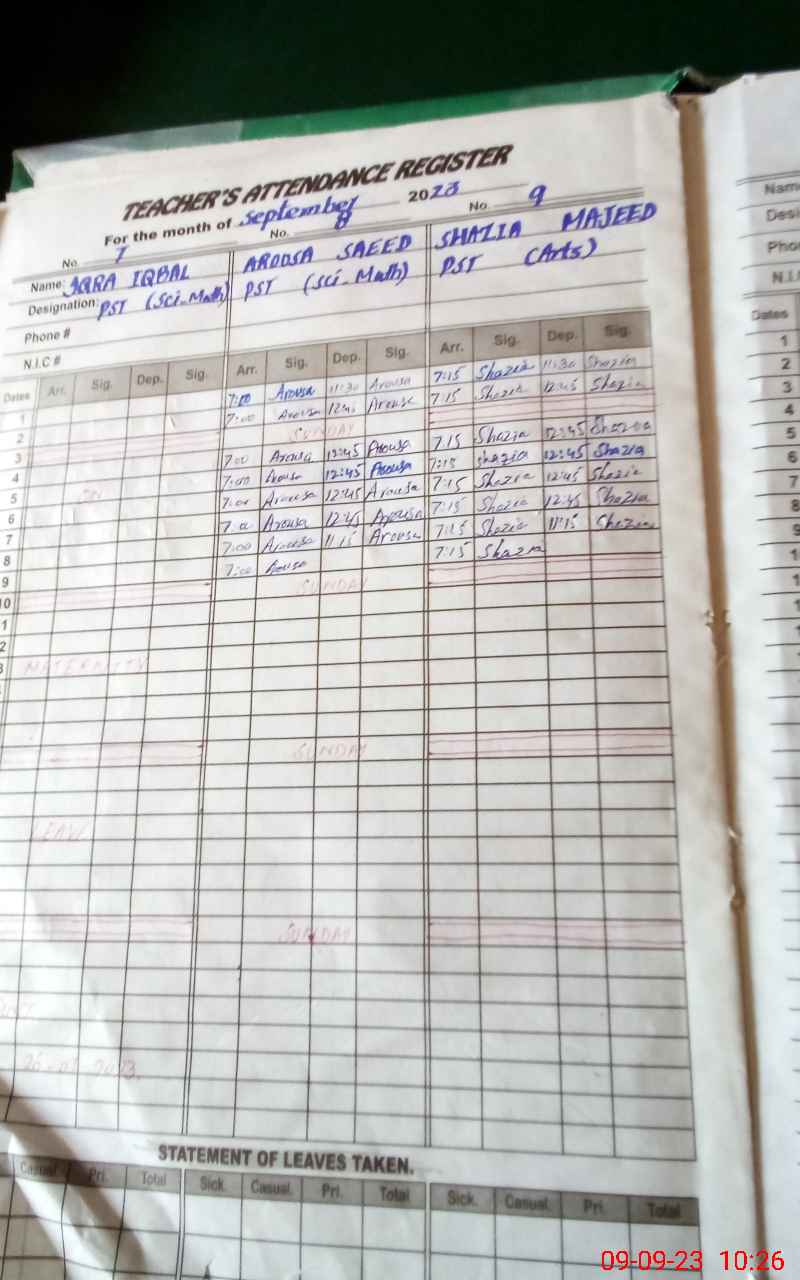 TEACHER'S ATTENDANCE REGISTER
For the month of September 2023
No. 7 No. 8 No. 9
Name: IQRA IQBAL AROOSA SAEED SHAZIA MAJEED
Designation: PST (Sci-Math) PST (Sci-Math) PST (Arts)
Phone #
N.I.C #
Dates Arr. Sig. Dep. Sig. Arr. Sig. Dep. Sig. Arr. Sig. Dep. Sig.
1 7:00 Arousa 11:30 Arousa 7:15 Shazia 11:30 Shazia
2 7:00 Arousa 12:45 Arousa 7:15 Shazia 12:45 Shazia
3 SUNDAY
4 7:00 Arousa 12:45 Arousa 7:15 Shazia 12:45 Shazia
5 ON 7:00 Arousa 12:45 Arousa 7:15 Shazia 12:45 Shazia
6 7:00 Arousa 12:45 Arousa 7:15 Shazia 12:45 Shazia
7 7:00 Arousa 12:45 Arousa 7:15 Shazia 12:45 Shazia
8 7:00 Arousa 11:15 Arousa 7:15 Shazia 11:15 Shazia
9 7:00 Arousa 7:15 Shazia
10 SUNDAY
1
2
3 MATERNITY
SUNDAY
LEAVE
SUNDAY
STATEMENT OF LEAVES TAKEN.
Casual. Pri. Total Sick. Casual. Pri. Total Sick. Casual. Pri. Total
Dates
1
2
3
4
5
6
7
8
9
1
1
1
1
09-09-23 10:26